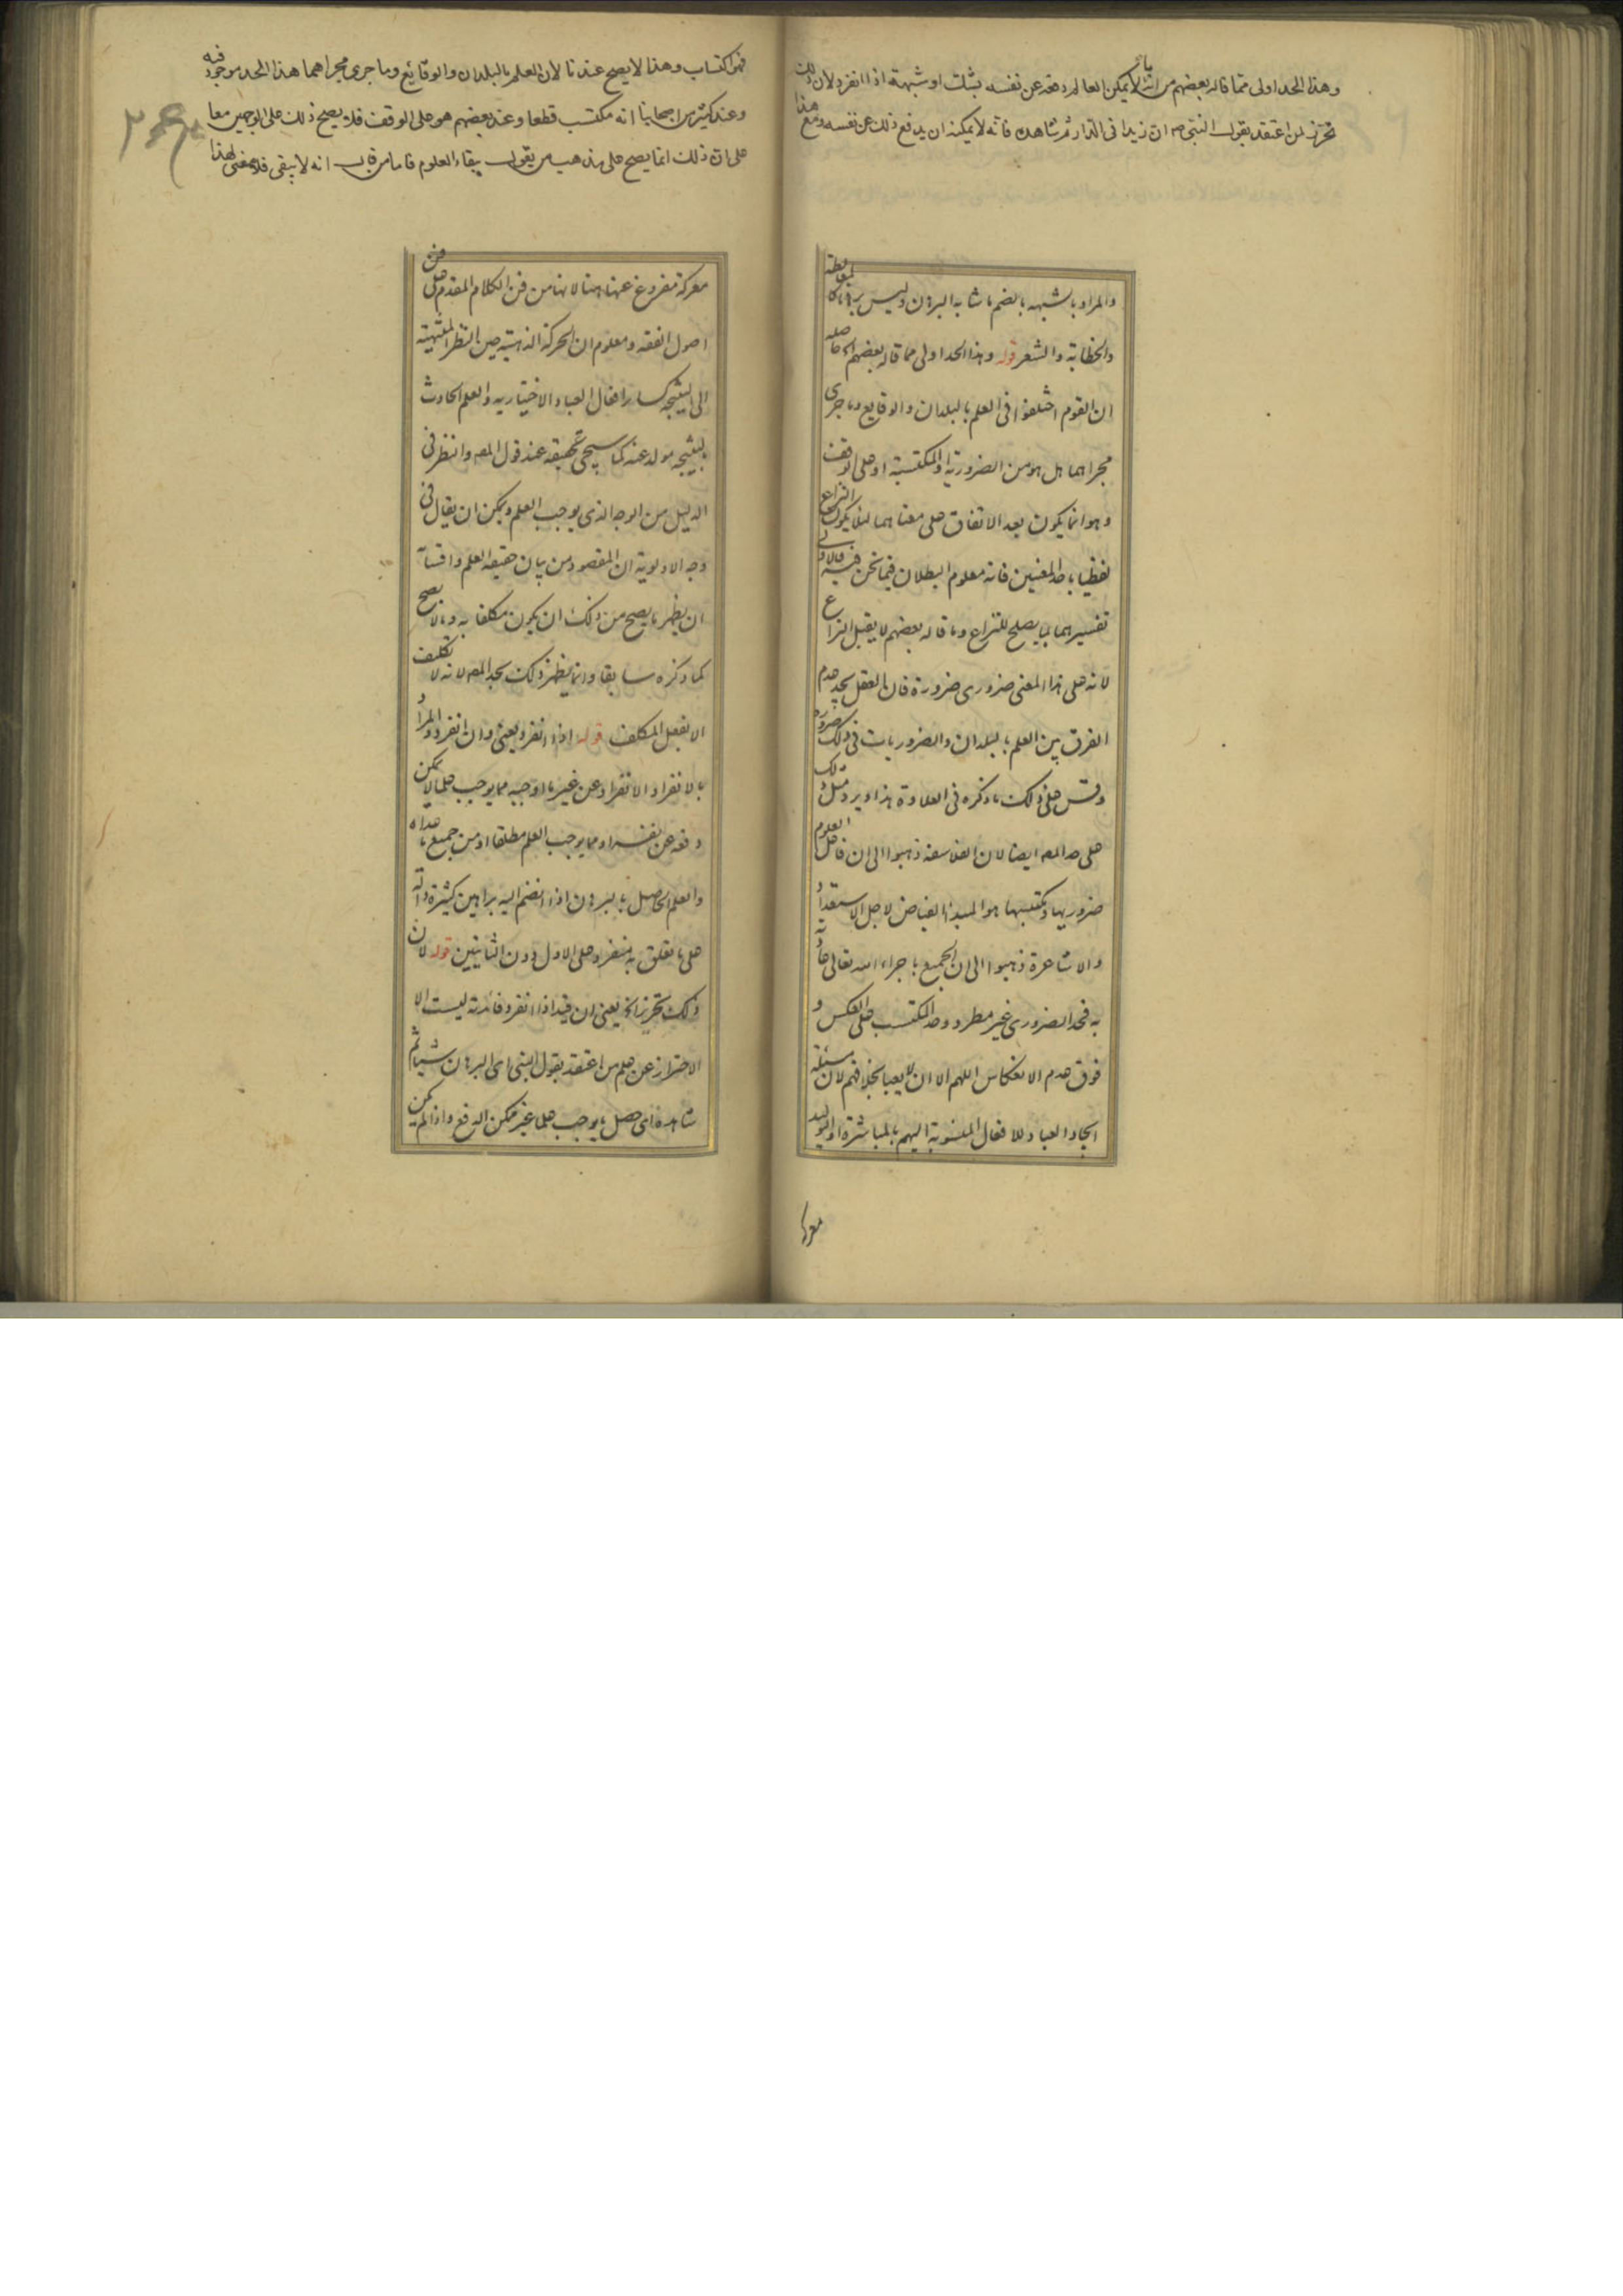 وهذا الحد اولى مما قاله بعضهم من انه ما لا يمكن العالم دفعه عن نفسه بشك او شبهة اذا انفرد لان ذلك
تحرز لمن اعتقد بقول النبي ص ان زيدا في الدار ثم شاهده فانه لا يمكنه ان يدفع ذلك عن نفسه ومع هذا
والمراد بالشبهه بالضم ما شابه البرهان وليس برهانا كالمغالطة
والخطابة والشعر قوله وهذا الحد اولى مما قاله بعضهم الخ حاصله
ان القوم اختلفوا في العلم بالبلدان والوقايع وما جرى
مجراهما هل هو من الضرورية او المكتسبة او على الوقف
وهو انما يكون بعد الاتفاق على معناهما لئلا يكون النزاع
لفظيا باحد المعنيين فانه معلوم البطلان فيما نحن فيه فالاولى
تفسيرهما بما يصلح للنزاع وما قاله بعضهم لا يقبل النزاع
لانه على هذا المعنى ضروري ضرورة فان العقل يجد عدم
الفرق بين العلم بالبلدان والضروريات في ذلك ضرورة
وقس على ذلك ما ذكره في العلاوة هذا ويرد مثل ذلك
على حد المص ايضا لان الفلاسفة ذهبوا الى ان فاعل العلوم
ضروريها ومكتسبها هو المبدأ الفياض لاجل الاستعداد
والاشاعرة ذهبوا الى ان الجميع باجراء الله تعالى عادته
به فحد الضروري غير مطرد وحد المكتسب على العكس و
فوق عدم الانعكاس اللهم الا ان لا يعبا بخلافهم لان مسئلة
ايجاد العباد للافعال المنسوبة اليهم بالمباشرة او التوليد
معركة
فهو اكتساب وهذا لا يصح عندنا لان العلم بالبلدان والوقايع وما جرى مجراهما هذا الحد موجود فيه
وعند كثير من اصحابنا انه مكتسب قطعا وعند بعضهم هو على الوقف فلا يصح ذلك على الوجهين معا
على ان ذلك انما يصح على مذهب من يقول ببقاء العلوم فاما من قال انه لا يبقى فلا معنى لهذا
معركة مفروغ عنها هنا لانها من فن الكلام المقدم على فن
اصول الفقه ومعلوم ان الحركة الذهنية حين النظر المنتهية
الى النتيجة كساير افعال العباد الاختيارية والعلم الحادث
بالنتيجة مولد عنه كما سيجي تحقيقه عند قول المص والنظر في
الدليل من الوجه الذي يوجب العلم ويمكن ان يقال في
وجه الاولوية ان المقصود من بيان حقيقة العلم واقسامه
ان يظهر ما يصح من ذلك ان يكون مكلفا به وما لا يصح
كما ذكره سابقا وانما يظهر ذلك بحد المص لانه لا تكليف
الا بفعل المكلف قوله اذا انفرد يعني وان انفرد والمراد
بالانفراد الانفراد عن غير ما اوجبه مما يوجب علما لا يمكن
دفعه عن نفسه او مما يوجب العلم مطلقا او من جميع ما عداه
والعلم الحاصل بالبرهان اذا انضم اليه براهين كثيرة دالة
على ما تعلق به منفرد على الاول دون الثانيين قوله لان
ذلك تحرز الخ يعني ان قيد اذا انفرد فائدته ليست الا
الاحتراز عن علم من اعتقد بقول النبي اي البرهان شيئا ثم
شاهده اي حصل ما يوجب علما غير ممكن الدفع واذا لم يمكن